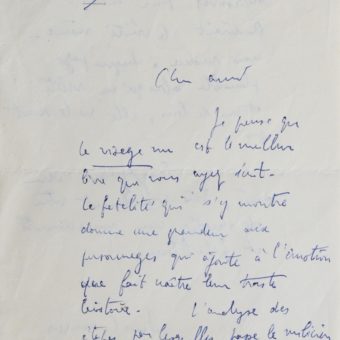 Cher ami
Je pense que
le visage nu est le meilleur
livre que vous ayez écrit.
La fatalité qui s'y montre
donne une grandeur aux
personnages qui ajoute à l'émotion
que fait naître leur triste
histoire. L'analyse des
par lesquelles passe le